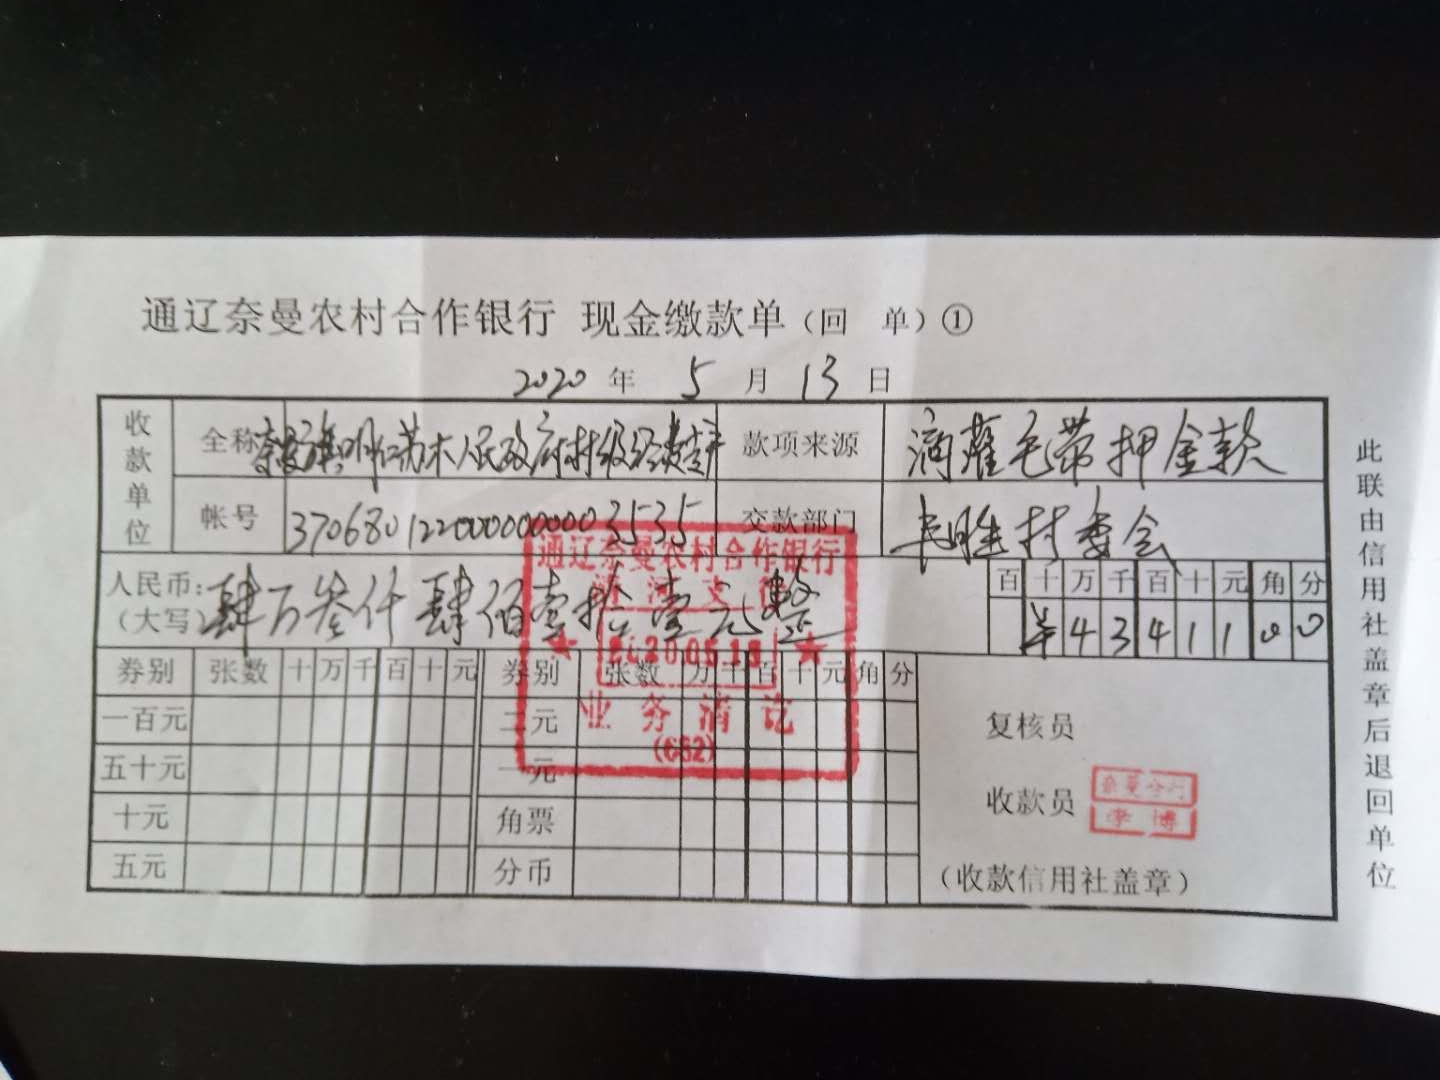 通辽奈曼农村合作银行 现金缴款单（回 单）①
2020 年 5 月 13 日
收款单位
全称 奈曼旗明仁苏木人民政府村级经费专户
款项来源 滴灌毛带押金款
帐号 3706801220000000003535
交款部门 丰胜村委会
人民币：（大写） 肆万叁仟肆佰壹拾壹元整
百 十 万 千 百 十 元 角 分
¥ 4 3 4 1 1 0 0
券别 张数 十 万 千 百 十 元 券别 张数 万 千 百 十 元 角 分
一百元 二元
五十元 一元
十元 角票
五元 分币
复核员
收款员
（收款信用社盖章）
此联由信用社盖章后退回单位
通辽奈曼农村合作银行
支行
业务清讫
(662)
李博